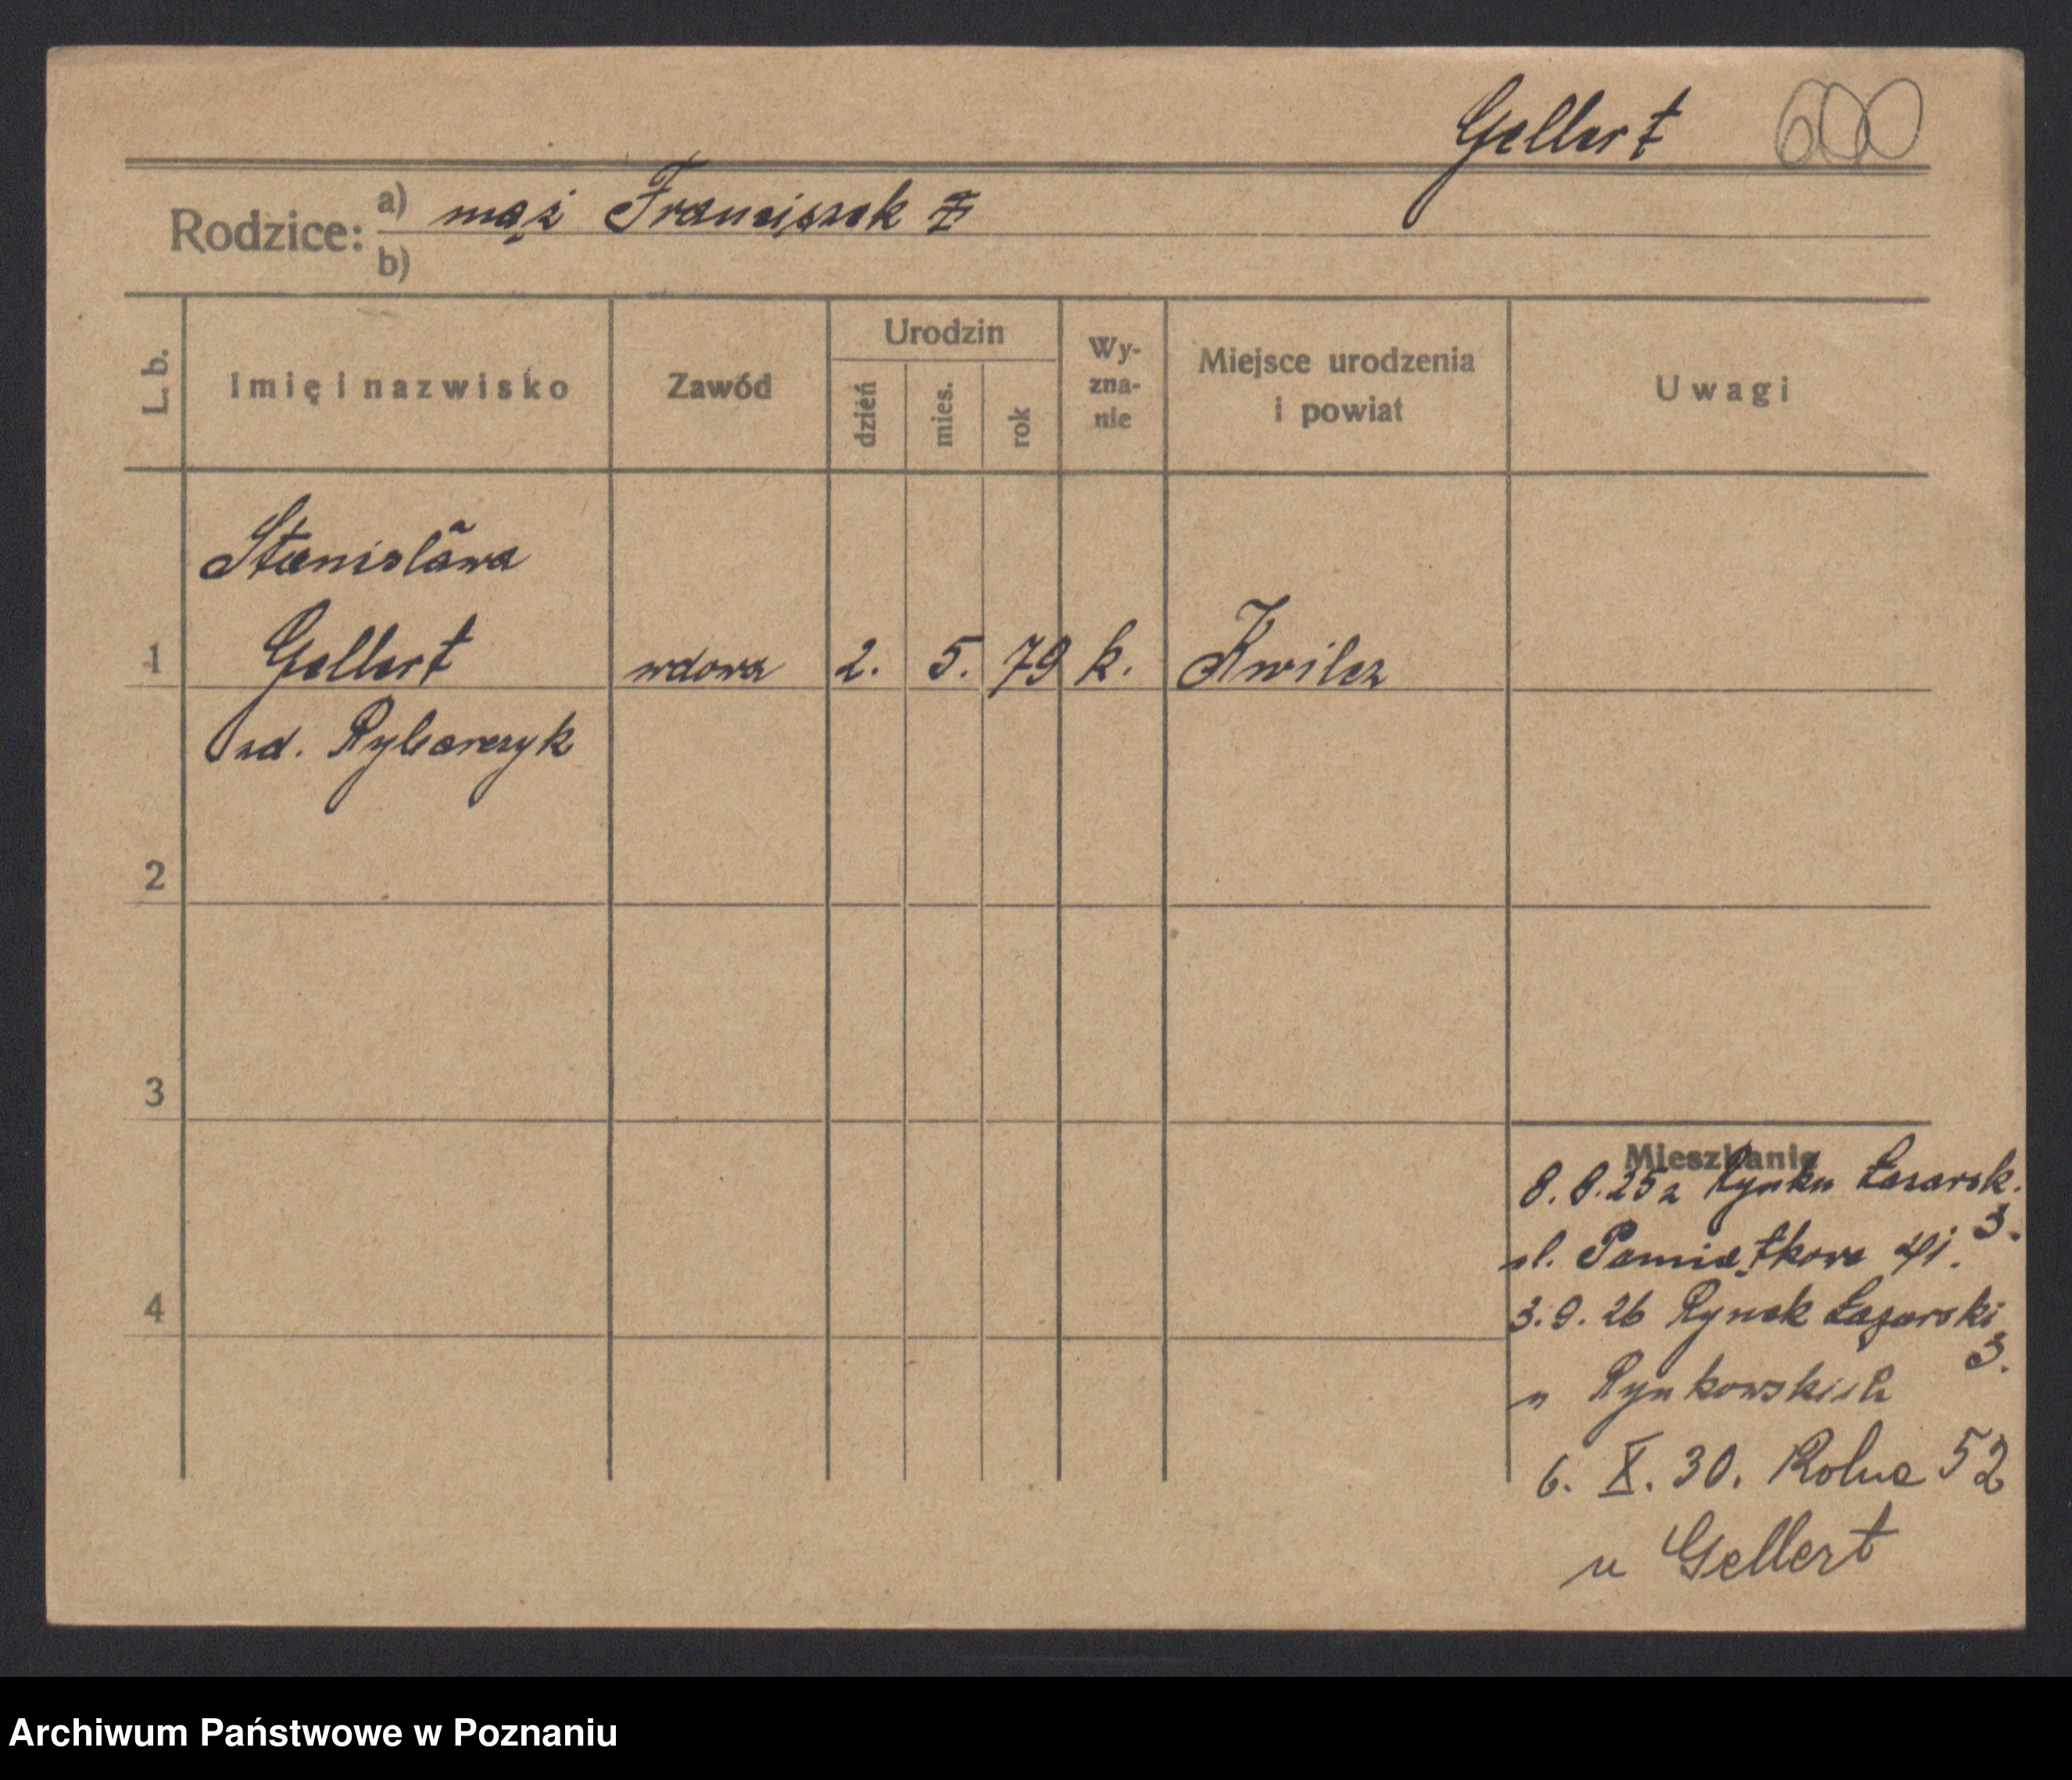 Gellert 600
Rodzice: a) mąż Franciszek
b)
L. b.
Imię i nazwisko
Zawód
Urodzin
dzień
mies.
rok
Wy-
zna-
nie
Miejsce urodzenia
i powiat
Uwagi
Stanisława
1 Gellert wdowa 2. 5. 79 k. Kwilcz
Rybarczyk
2
3
4
Mieszkanie
8.8.25 z Rynku Łazarsk.
3.
ul. Pamiątkowa
3.9.26 Rynek Łazarski
3.
u Rynkowskich
6. X. 30. Rolna 52
u Gellert
Archiwum Państwowe w Poznaniu